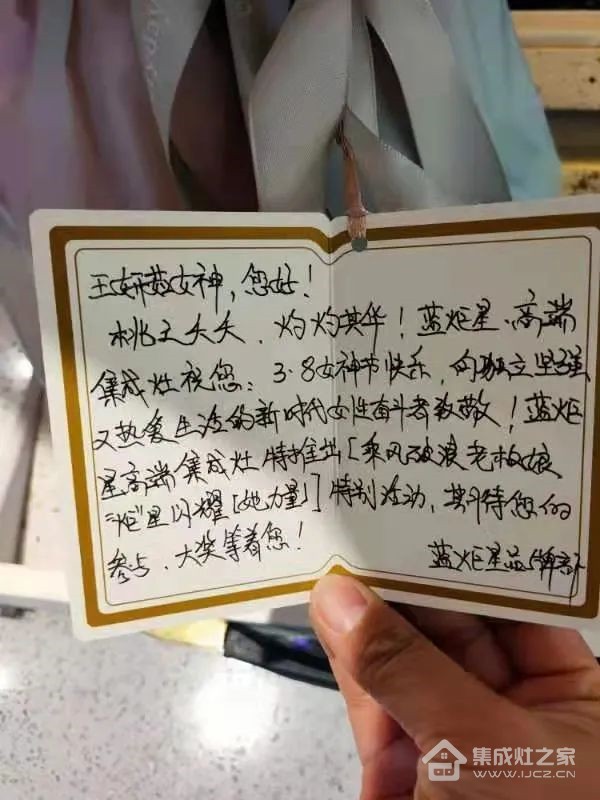 王妍茹女神，您好！
桃之夭夭、灼灼其华！蓝炬星、高端
集成灶祝您：3·8女神节快乐，向独立坚强
又热爱生活的新时代女性奋斗者致敬！蓝炬
星高端集成灶特推出[乘风破浪老板娘
"炬"星闪耀[她力量]]特别活动，期待您的
参与、大奖等着您！
蓝炬星品牌部
集成灶之家
WWW.IJCZ.CN